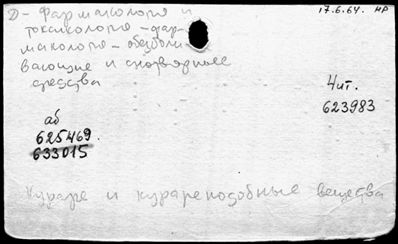 Д - Фармакология и
токсикология - фар-
макология - обезболи
вающие и снотворные
средства
17.6.64. НР
Чит.
623983
аб
625469
633015
Кураре и курареподобные вещества